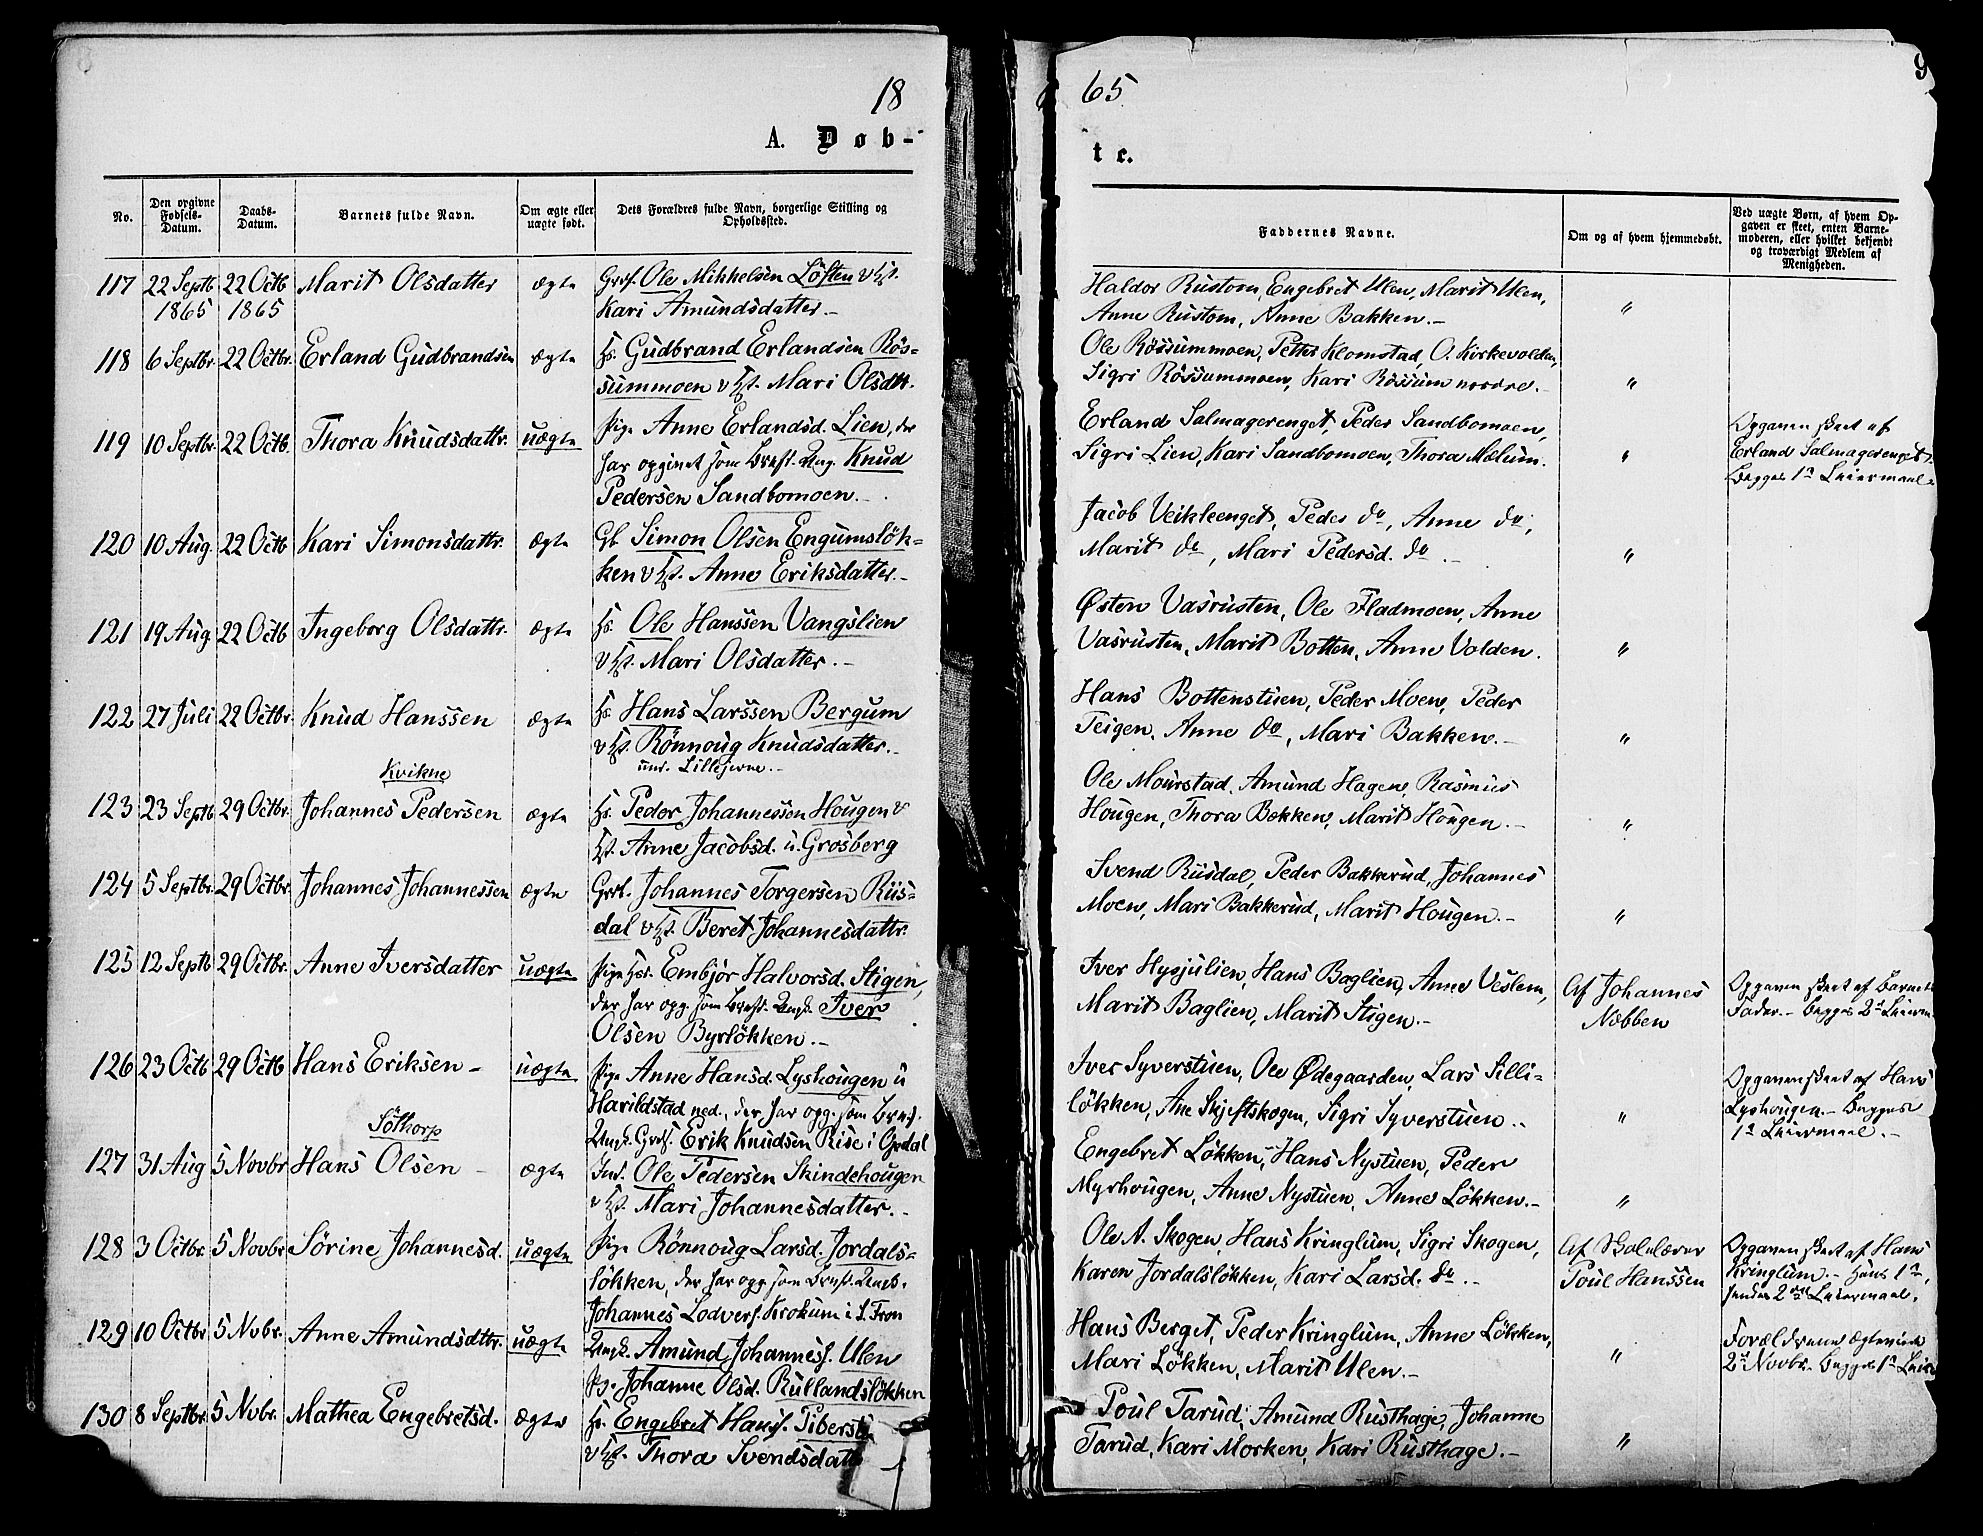 18
65
9
A. Døb-
te.
No.
Den opgivne Fødsels-Datum.
Daabs-Datum.
Barnets fulde Navn.
Om ægte eller uægte født.
Dets Forældres fulde Navn, borgerlige Stilling og Opholdssted.
Faddernes Navne.
Om og af hvem hjemmedøbt.
Ved uægte Børn, af hvem Opgaven er skeet, enten Barnemoderen, eller hvilket bekjendt og troværdigt Medlem af Menigheden.
117 22 Septb 22 Octb Marit Olsdatter ægte Grdf. Ole Mikkelsen Löften v Hst.
1865 1865 Kari Amundsdatter.-
Haldor Rustom, Engebret Ulen, Marit Ulen,
Anne Rustom, Anne Bakken.- "
118 6 Septbr. 22 Octbr. Erland Gudbrandsen ægte Hs. Gudbrand Erlandsen Rös-
summoen v Hst. Mari Olsdtr.
Ole Rössummoen, Petter Klomstad, O. Kirkevolden,
Sigri Rössummoen, Kari Rössum nordre.- "
119 10 Septbr. 22 Octb. Thora Knudsdattr. uægte Pige Anne Erlandsd. Lien, der
har opgivet som Brnf. Ung. Knud
Pedersen Sandbomoen.-
Erland Salmagerenget, Peder Sandbomoen,
Sigri Lien, Kari Sandbomoen, Thora Mælum. "
Opgaven skeet af
Erland Salmagerenget.
Begges 1ste Leiermaal.
120 10 Aug. 22 Octb Kari Simonsdattr. ægte Gb Simon Olsen Engumslök-
ken v Hst. Anne Eriksdatter.-
Jacob Veikleenget, Peder do, Anne do,
Marit do, Mari Pedersd. do.- "
121 19 Aug 22 Octb Ingeborg Olsdattr. ægte Hs. Ole Hanssen Vangslien
v Hst. Mari Olsdatter.-
Østen Vasrusten, Ole Fladmoen, Anne
Vasrusten, Marit Botten, Anne Volden. "
122 27 Juli 22 Octbr. Knud Hanssen ægte Hs. Hans Larssen Bergum
v Hst. Rönnoug Knudsdatter.-
und. Lillejevne.-
Hans Bottenstuen, Peder Moen, Peder
Teigen, Anne do, Mari Bakken.- "
Kvikne
123 23 Septb 29 Octbr. Johannes Pedersen ægte Hs. Peder Johannessen Hougen v
Hst. Anne Jacobsd. u. Grosberg
Ole Mourstad, Amund Hagen, Rasmus
Hougen, Thora Bakken, Marit Hougen.- "
124 5 Septbr. 29 Octbr. Johannes Johannessen ægte Grdf. Johannes Torgersen Riis-
dal v Hst. Beret Johannesdattr.
Svend Riisdal, Peder Bakkerud, Johannes
Moen, Mari Bakkerud, Marit Hougen.- "
125 12 Septb 29 Octbr. Anne Iversdatter uægte Pige Hs. Embjör Halvorsd. Stigen,
der har opg. som Brnf. Ungk. Iver
Olsen Byrlökken.-
Iver Hysjulien, Hans Baglien, Anne Veslem,
Marit Baglien, Marit Stigen.-
Af Johannes
Næbben
Opgaven skeet af Barnets
Fader.- Begges 2d Leierm
126 23 Octb 29 Octb Hans Eriksen - uægte Pige Anne Hansd. Lyshougen u
Harildstad ned., der har opg. som Brnf.
Ungk. Grdf. Erik Knudsen Rise i Opdal
Iver Syverstuen, Ole Ødegaarden, Lars Silli-
lökken, Ane Skjeftskogen, Sigri Syverstuen.- "
Opgaven skeet af Hans
Lyshougen.- Begges
1ste Leiermaal.-
Söthorp
127 31 Aug 5 Novbr Hans Olsen - ægte Ind. Ole Pedersen Skindehougen
v Hst. Mari Johannesdatter.-
Engebret Lökken, Hans Nystuen, Peder
Myrhougen, Anne Nystuen, Anne Lökken.- "
128 3 Octbr. 5 Novbr Sörine Johannesd. uægte Pige Rönnoug Larsd. Jordals-
lökken, der har opg. som Brnf. Ungk.
Johannes Lodvers. Krokum i S. Fron
Ole A. Skogen, Hans Kringlum, Sigri Skogen,
Karen Jordalslökken, Kari Larsd. do.-
Af Skolelærer
Poul Hanssen
Opgaven skeet af Hans
Kringlum.- Hans 1ste,
hendes 2det Leiermaal.
129 10 Octbr. 5 Novbr. Anne Amundsdttr. uægte Ungk. Amund Johanness. Ulen
Pg. Johanne Olsd. Rullandslökken
Hans Berget, Peder Kringlum, Anne Lökken,
Mari Lökken, Marit Ulen.- "
Forældrene ægteviede
2d Novbr. Begges 1ste Leierm
130 8 Septbr. 5 Novbr. Mathea Engebretsd. ægte Hs. Engebret Hanss. Pibersti
v Hst. Thora Svendsdatte
Poul Tarud, Amund Rusthage, Johanne
Tarud, Kari Morken, Kari Rusthage.- "